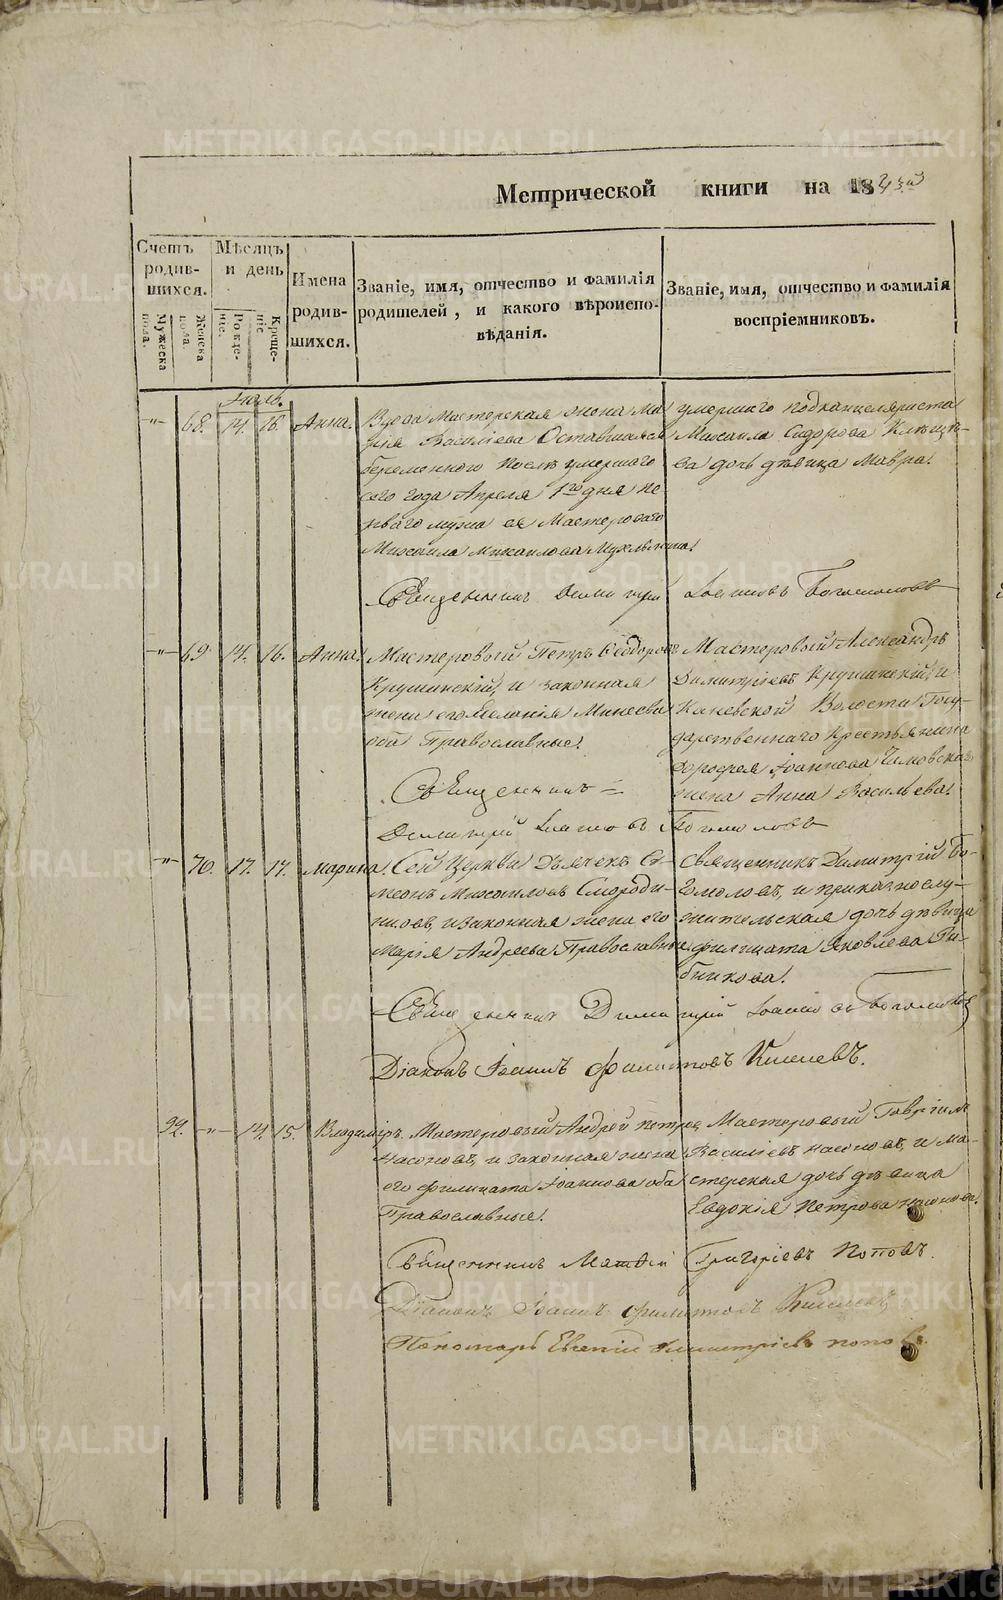 Метрической книги на 1843й
Счетъ родившихся.
Мужеска пола.
Женска пола.
Мѣсяцъ и день
Рожденіе.
Крещеніе
Имена родившихся.
Званіе, имя, отчество и фамилія родителей, и какого вѣроисповѣданія.
Званіе, имя, отчество и фамилія воспріемниковъ.
Іюль.
-"- 68. 14. 16. Анна.
Вдова Мастерская жона Ма
рія Василіева Оставшаяся
беременною после умершаго
сего года Апреля 1го дня пе
рваго мужа ея Мастероваго
Михаила Михаилова
умершаго подканцеляриста
Михаила Сидорова
ва дочь дѣвица Мавра.
Священникъ Димитрій Іоанновъ Богомоловъ
-"- 69 14. 16. Анна.
Мастеровый Петръ Ѳеодоровъ
Крушинскій, и законная
жена его Меланія Минеева
оба Православные.
Мастеровый Александръ
Димитріевъ Крушинскій, и
Каневской Волости Госу-
дарственнаго Крестьянина
Дорофея Іоаннова
жена Анна Васильева.
Священникъ
Димитрій Іоанновъ Богомоловъ
-"- 70. 17. 17. Марина.
Сей Церкви Дьячекъ Си
меонъ Михаиловъ Смороди-
нцовъ, и законная жена его
Марія Андреева Православные
Священникъ Димитрій Бо-
гомоловъ, и приказнослу-
жительская дочь дѣвица
Филицата Яковлева
бникова.
Священникъ Димитрій Іоанновъ Богомоловъ
Діаконъ Іоаннъ Филиповъ Киселевъ.
92. -"- 14. 15. Владимиръ.
Мастеровый Андрей Петровъ
Насоновъ, и законная жена
его Филицата Іоаннова оба
Православные.
Мастеровый Гавріилъ
Василіевъ Насоновъ, и ма-
стерская дочь дѣвица
Евдокія Петрова Насонова.
Священникъ Матѳій Григоріевъ Поповъ.
Діаконъ Іоаннъ Филиповъ Киселевъ
Пономарь Евгеній Димитріевъ Поповъ.
METRIKI.GASO-URAL.RU